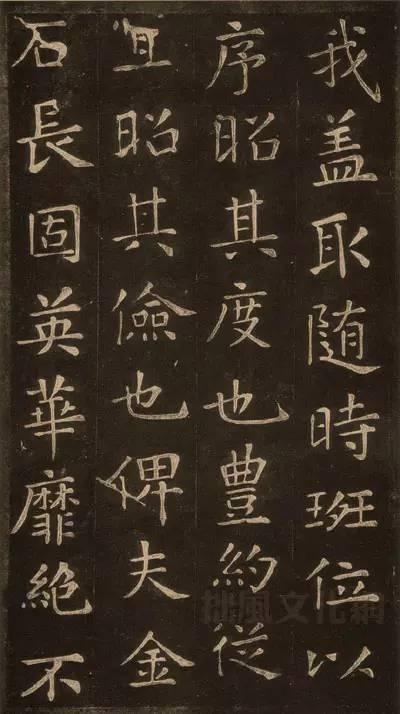 我盖取随時班位以
序昭其度也豊約從
宜昭其儉也俾夫金
石長固英華靡絶不
拙風文化網